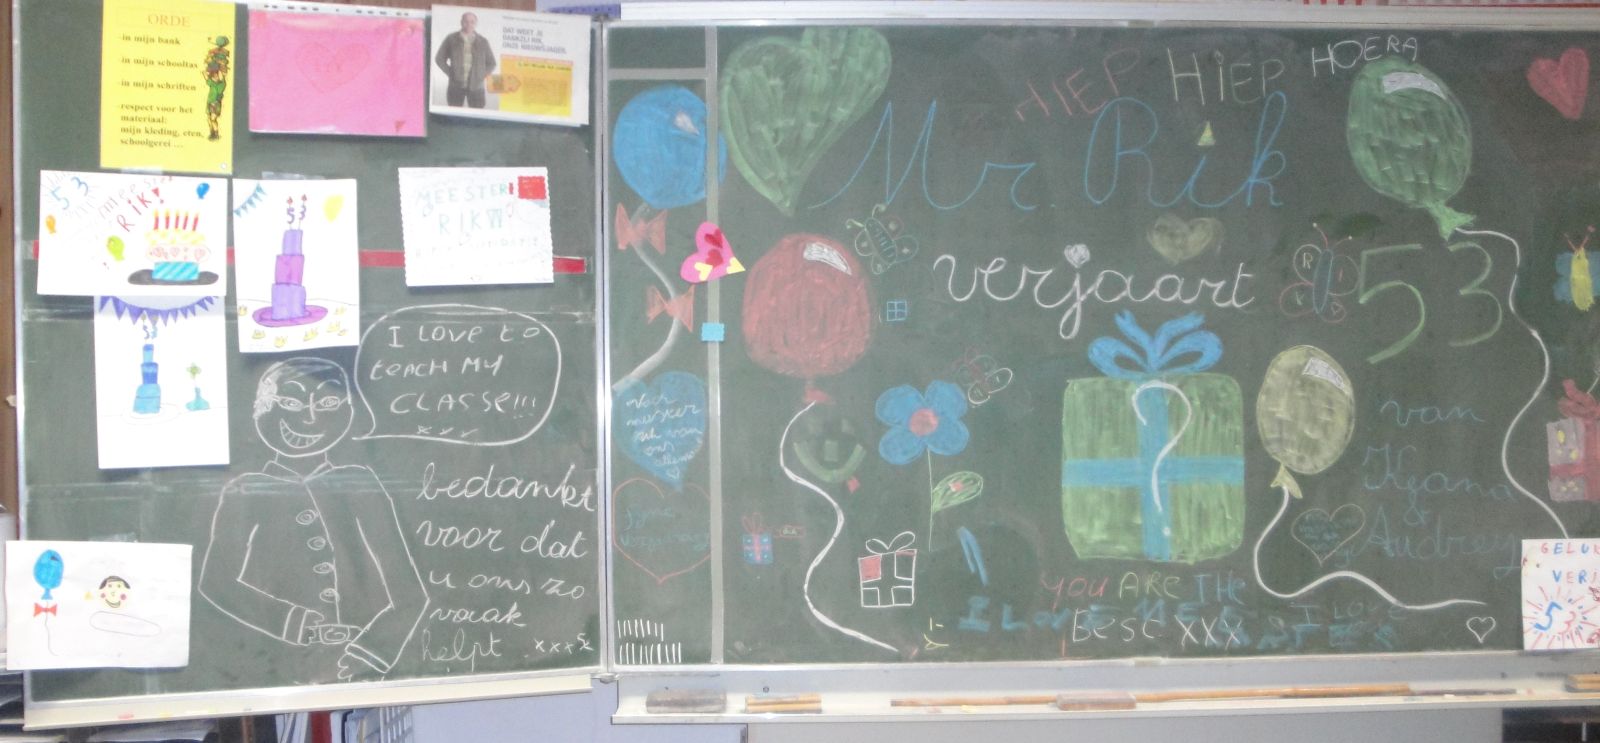 ORDE
-in mijn bank
-in mijn schooltas
-in mijn schriften
-respect voor het
materiaal:
mijn kleding, eten,
schoolgerei ...
DAT WEET JE
DANKZIJ RIK,
ONZE NIEUWSJAGER.
53
meester
RIK!
53
MEESTER
RIK!!
53
I LOVE to
teACH MY
CLASSe!!!
xxx
bedankt
voor dat
u ons zo
vaak
helpt xxx
Voor
meester
rik van
ons
allemaal
HIEP HiEP HOERA
Mr. Rik
verjaart
53
R I
van
Kyana
&
Audrey
YOU ARE THE
BeSt XXX
I LOVE
GELUK
VERJ
53